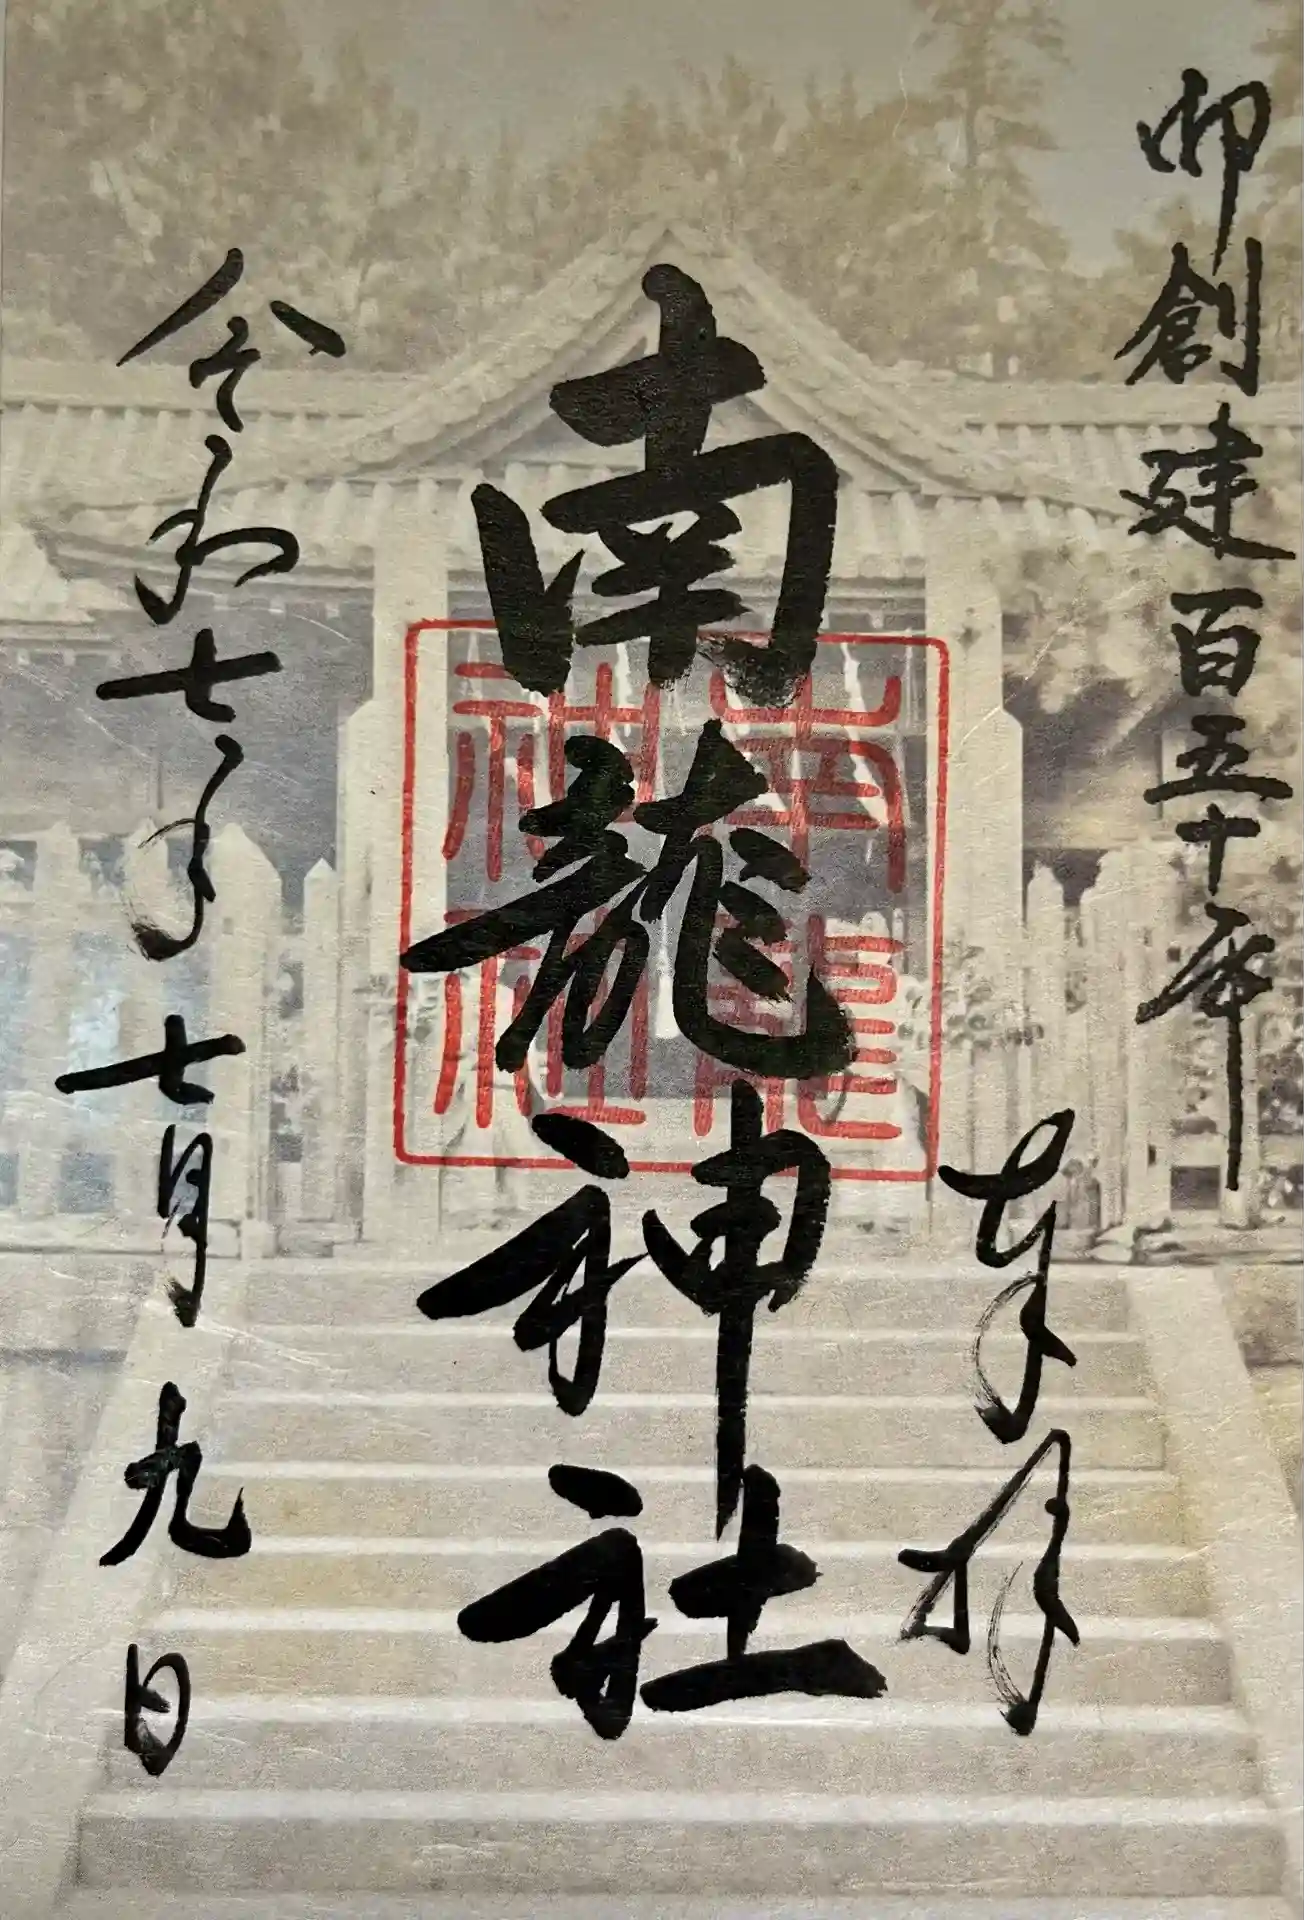 御創建百五十年
奉拝
南龍神社
南龍
神社
令和七年七月九日